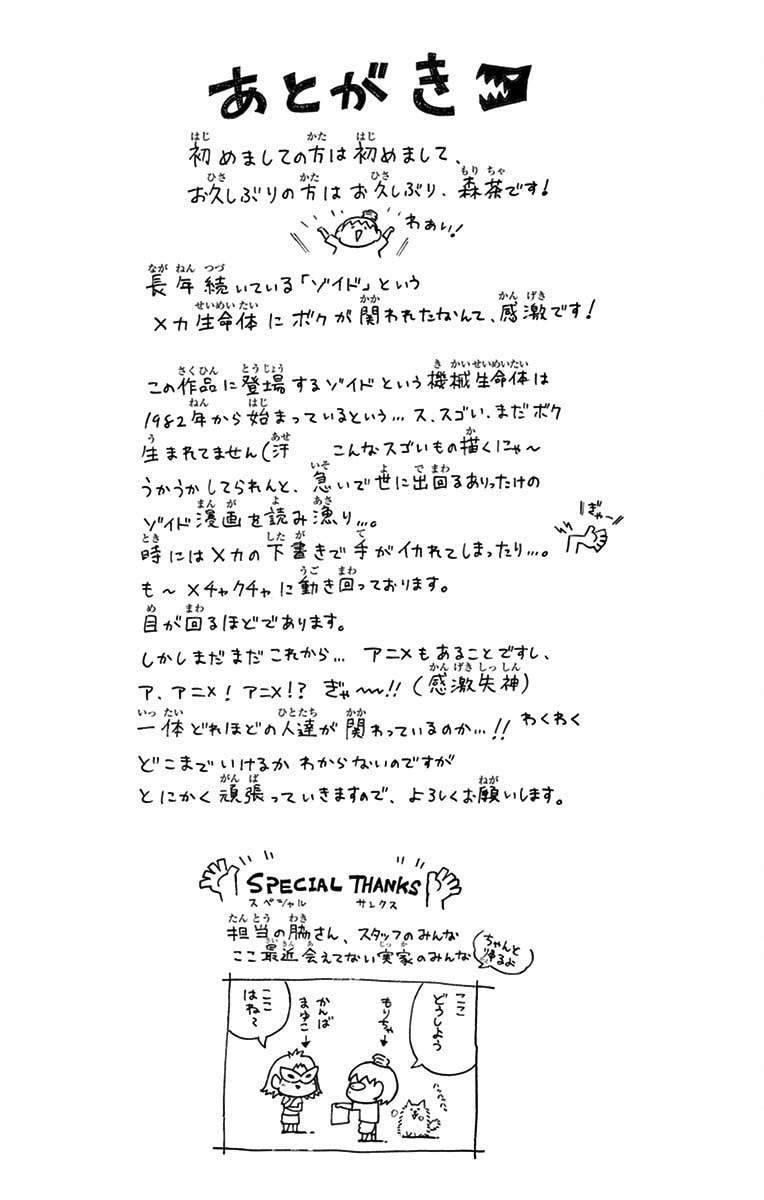 あとがき
初めましての方は初めまして、
お久しぶりの方はお久しぶり、森茶です!
わぁい!
長年続いている「ゾイド」という
メカ生命体にボクが関われたなんて、感激です!
この作品に登場するゾイドという機械生命体は
1982年から始まっているという…ス、スゴい、まだボク
生まれてません(汗 こんなスゴいもの描くにゃ〜
うかうかしてられんと、急いで世に出回るありったけの
ゾイド漫画を読み漁り…。
ぎゃー
時にはメカの下書きで手がイカれてしまったり…。
も〜メチャクチャに動き回っております。
目が回るほどであります。
しかしまだまだこれから… アニメもあることですし、
ア、アニメ!アニメ!? ぎゃ〜〜!!(感激失神)
一体どれほどの人達が関わっているのか…!! わくわく
どこまでいけるかわからないのですが
とにかく頑張っていきますので、よろしくお願いします。
SPECIAL THANKS
スペシャル サンクス
担当の脇さん、スタッフのみんな
ここ最近会えてない実家のみんな
ちゃんと
帰るよ
ここ
どうしよう
もりちゃ→
かんば
まゆこ→
ここ
はね〜